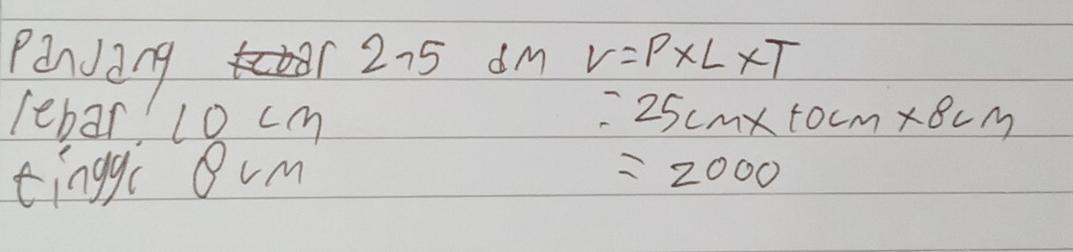 Panjang 2,5 dm V=PxLxT
lebar 10 cm = 25cmx10cmx8cm
tinggi 8 cm = 2000